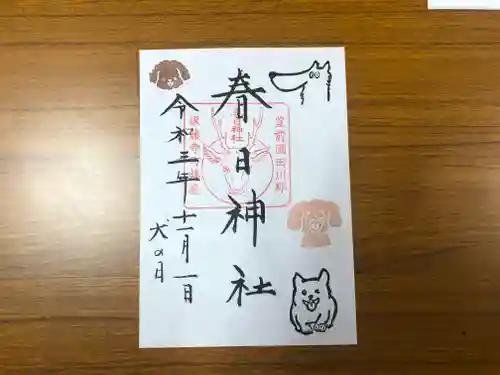 春日神社
令和三年
十一月一日
犬の日
豊前國田川郡
春日神社